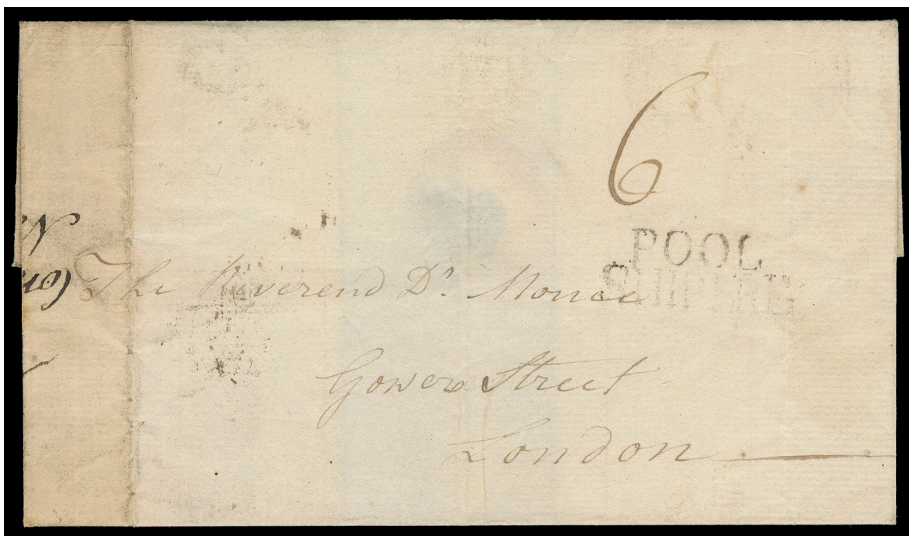 6
POOL
SHIPLRE
The Reverend Dr. Monro
Gower Street
London